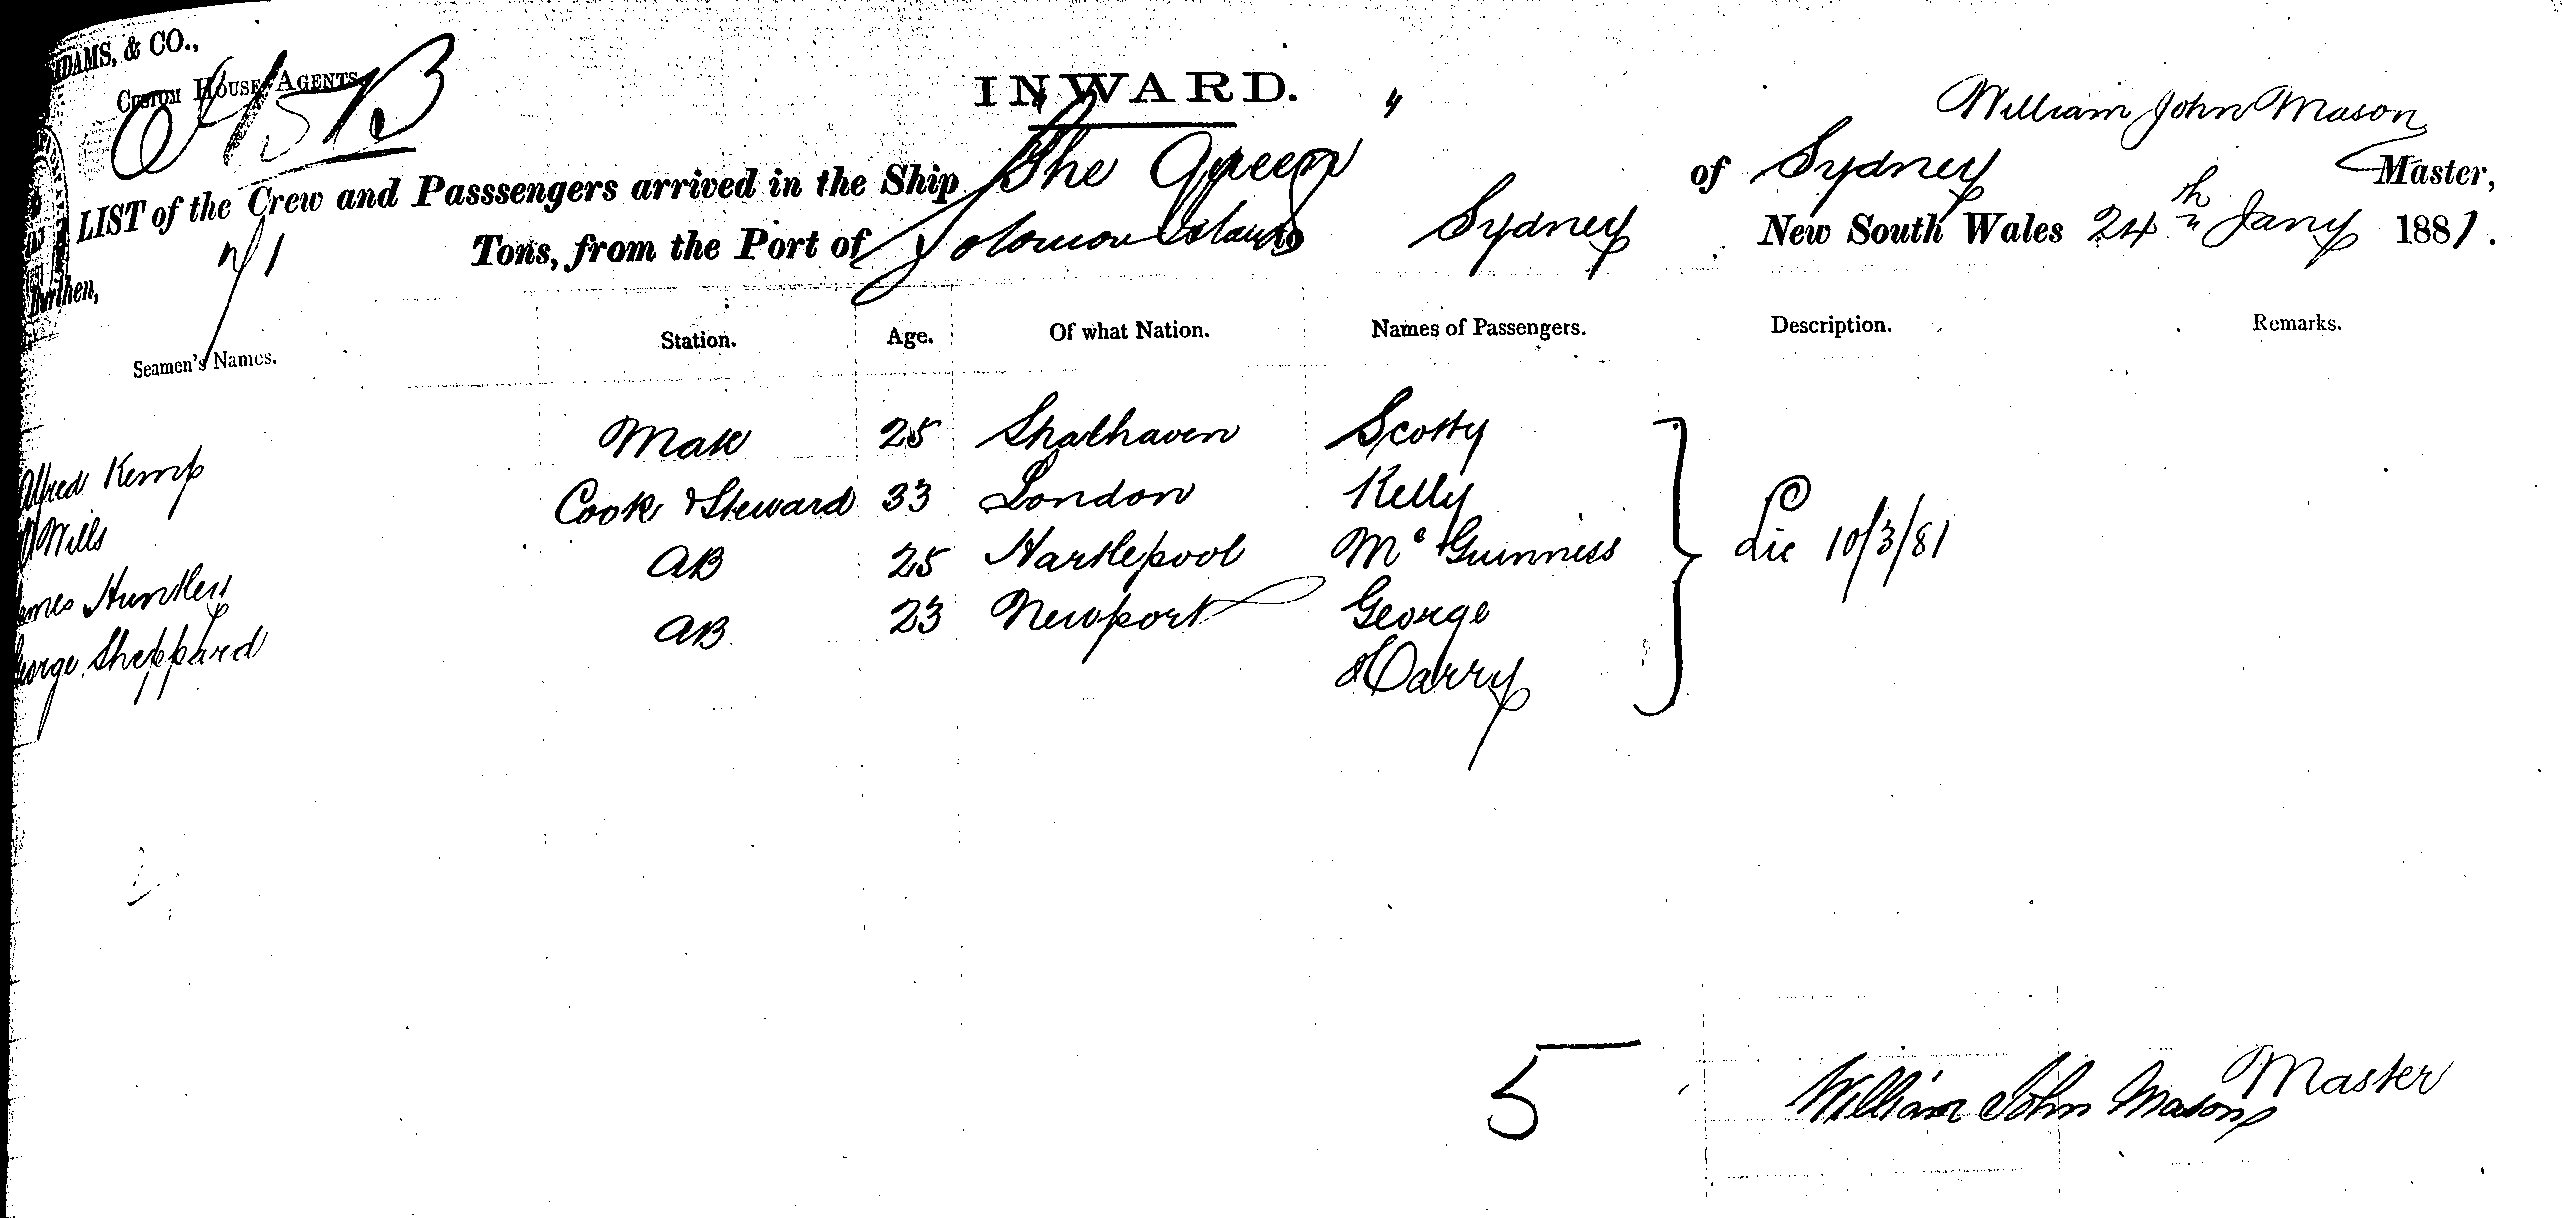 ADAMS, & CO.,
CUSTOM HOUSE AGENTS
INWARD.
William John Mason
LIST of the Crew and Passsengers arrived in the Ship "The Queen" of Sydney Master,
Burthen, 71 Tons, from the Port of Solomon Islands to Sydney New South Wales 24th Jany 1881.
Seamen's Names. Station. Age. Of what Nation. Names of Passengers. Description. Remarks.
Alfred Kemp Mate 25 Shalhaven Scotty
Wills Cook & Steward 33 London Kelly
James Huntley AB 25 Hartlepool McGuinness Lic 10/3/81
George Sheppard AB 23 Newport George
Harry
5
William John Mason Master